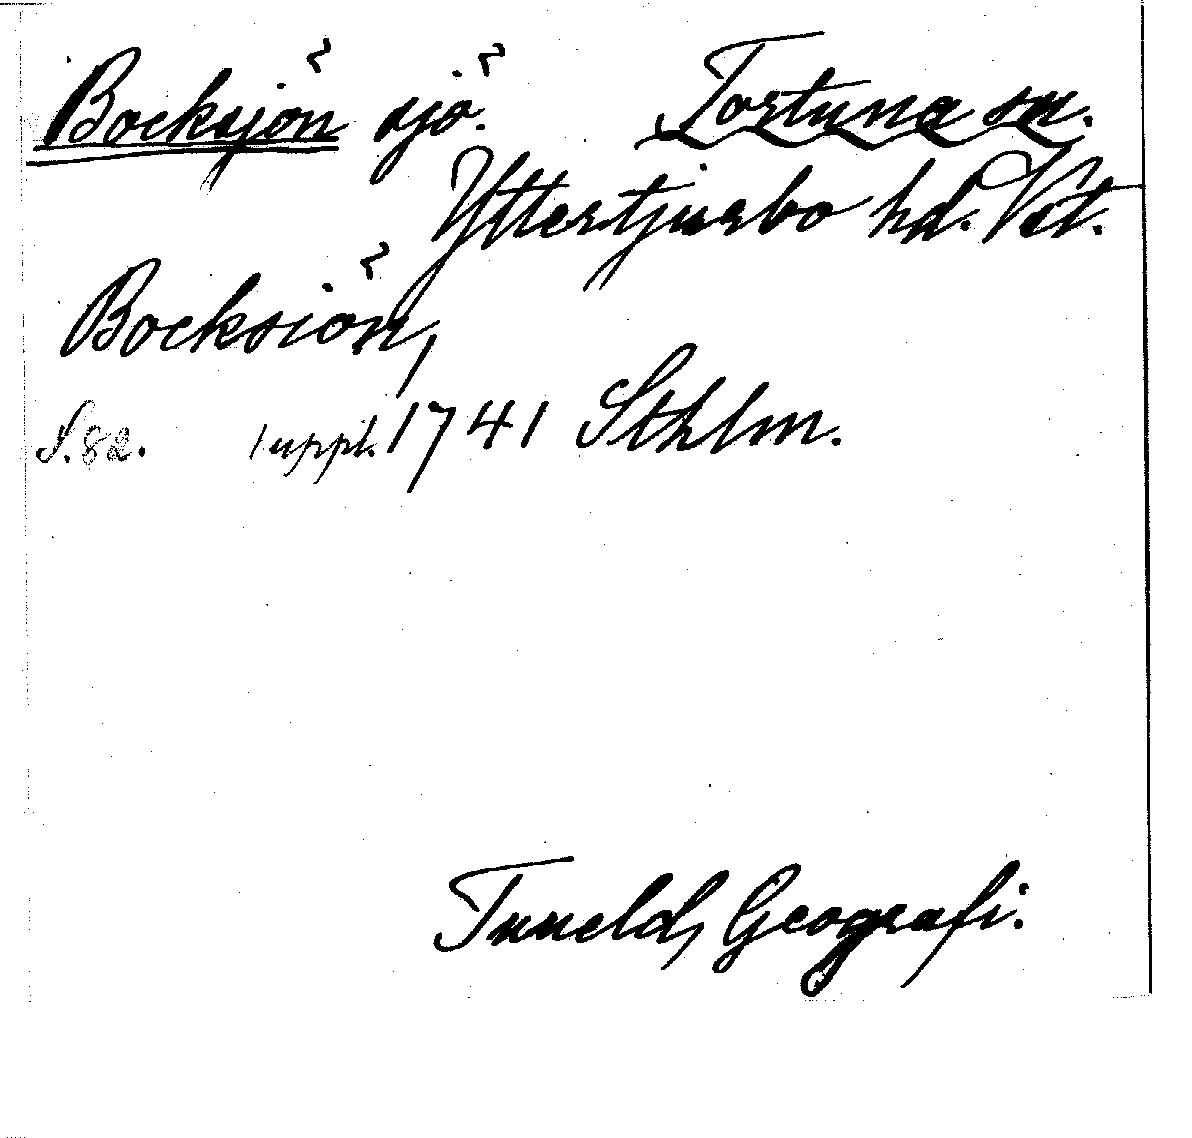 Bocksjön sjö. Tortuna sn.
Yttertjurbo hd. Vst.
Bocksiön,
S. 82. 1 uppl. 1741 Sthlm.
Tuneld, Geografi.